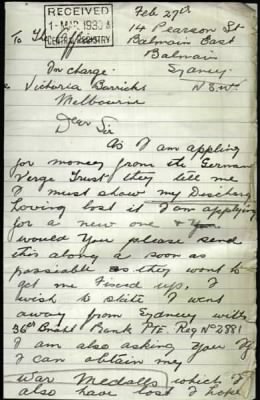 RECEIVED
1-MAR 1930
CENTRAL REGISTRY
Feb 27th
14 Pearson St
Balmain East
Balmain
Sydney
N S W
To The Officer
In charge
Victoria Barricks
Melbourne
Dear Sir
As I am appling
for money from the German
Verge Trust they tell me
I must show my Discharg
Loving lost it I am applying
for a new one &
would you please send
this along a soon as
possiable as they want to
get me Fixed up. I
wish to skite I went
away from Sydney with
36th Bn PTE Reg No 2881
I am also asking you If
I can obtain my
War Medalls which I
also have lost I hope